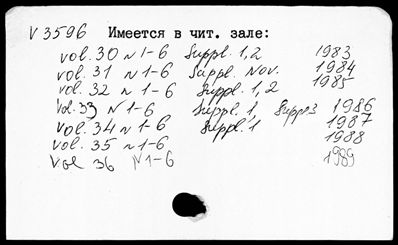 V 3596 Имеется в чит. зале:
vol. 30 N 1-6 Suppl. 1,2 1983
vol. 31 N 1-6 Suppl. Nov. 1984
vol. 32 N 1-6 Suppl. 1,2 1985
Vol. 33 N 1-6 Suppl. 1, Suppl 3 1986
vol. 34 N 1-6 Suppl. 1 1987
vol. 35 N 1-6 1988
Vol 36 N 1-6 1989